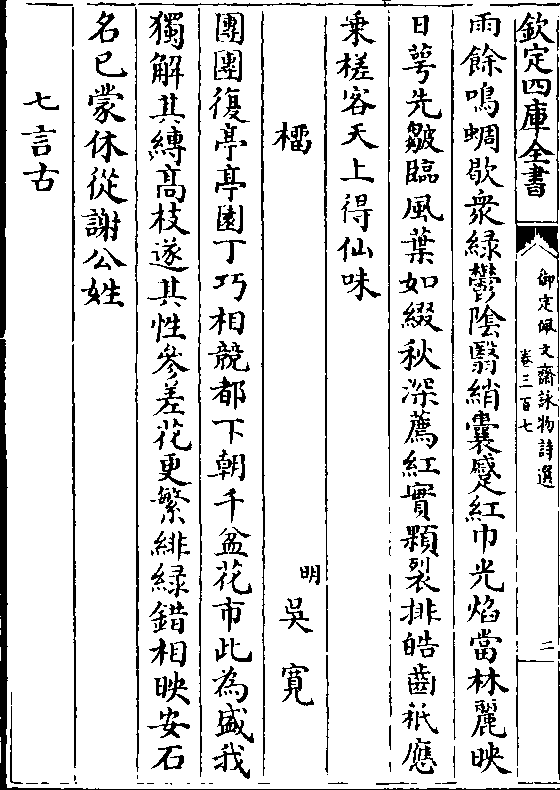 欽定四庫全書
御定佩文齋詠物詩選
卷三百七
二
雨餘鳴蜩歇衆緑鬱陰翳綃囊蹙紅巾光焰當林麗映
日萼先皺臨風葉如綴秋深薦紅實顆裂排皓齒秪應
乗槎客天上得仙味
橊
明
吳寛
團團復亭亭園丁巧相競都下朝千盆花市此為盛我
獨解其縛髙枝遂其性參差花更繁緋緑錯相映安石
名已蒙休從謝公姓
七言古